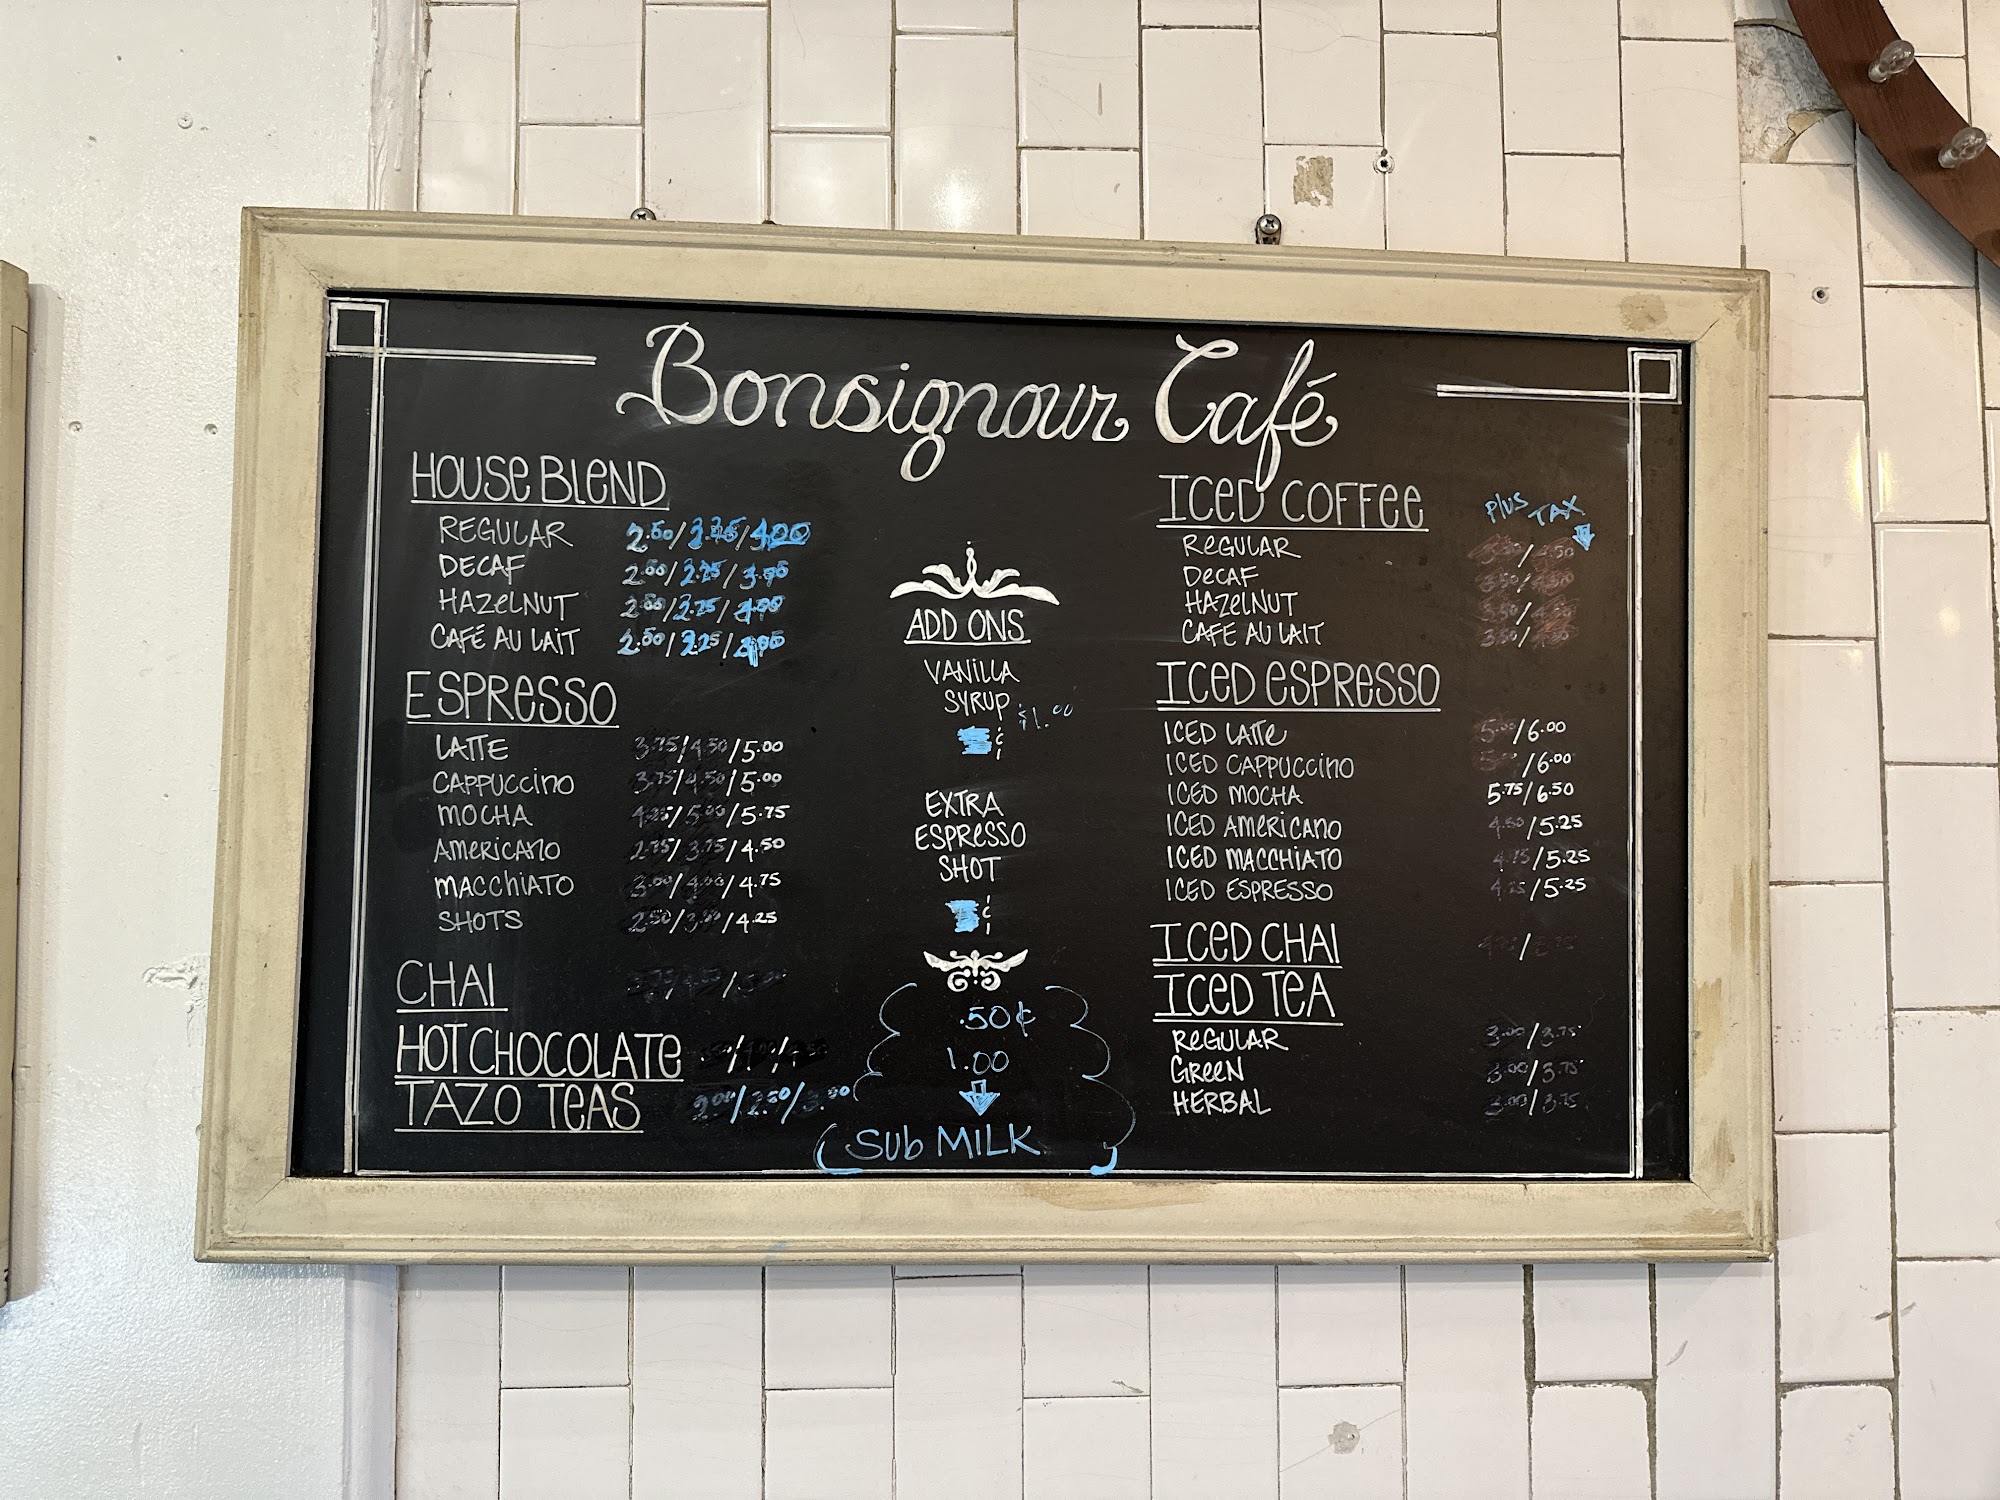 Bonsignour Café
HOUSE BLEND
REGULAR 2.50/3.25/4.00
DECAF 2.50/3.25/
HAZELNUT 2.50/3.25/4.00
CAFÉ AU LAIT 2.50/3.25/
ESPRESSO
LATTE 3.75/4.50/5.00
CAPPUCCINO 3.75/4.50/5.00
MOCHA 4.25/5.00/5.75
AMERICANO 2.75/3.75/4.50
MACCHIATO 3.00/4.00/4.75
SHOTS 2.50/ /4.25
CHAI
HOT CHOCOLATE
TAZO TEAS 2.00/2.50/3.00
ADD ONS
VANILLA
SYRUP $1.00
¢
EXTRA
ESPRESSO
SHOT
¢
.50¢
1.00
SUB MILK
ICED COFFEE PLUS TAX
REGULAR 3.50/4.50
DECAF 3.50/
HAZELNUT 3.50/
CAFE AU LAIT 3.50/
ICED ESPRESSO
ICED LATTE 5.00/6.00
ICED CAPPUCCINO /6.00
ICED MOCHA 5.75/6.50
ICED AMERICANO 4.50/5.25
ICED MACCHIATO 4.75/5.25
ICED ESPRESSO 4.25/5.25
ICED CHAI
ICED TEA
REGULAR 3.00/3.75
GREEN 3.00/3.75
HERBAL 3.00/3.75